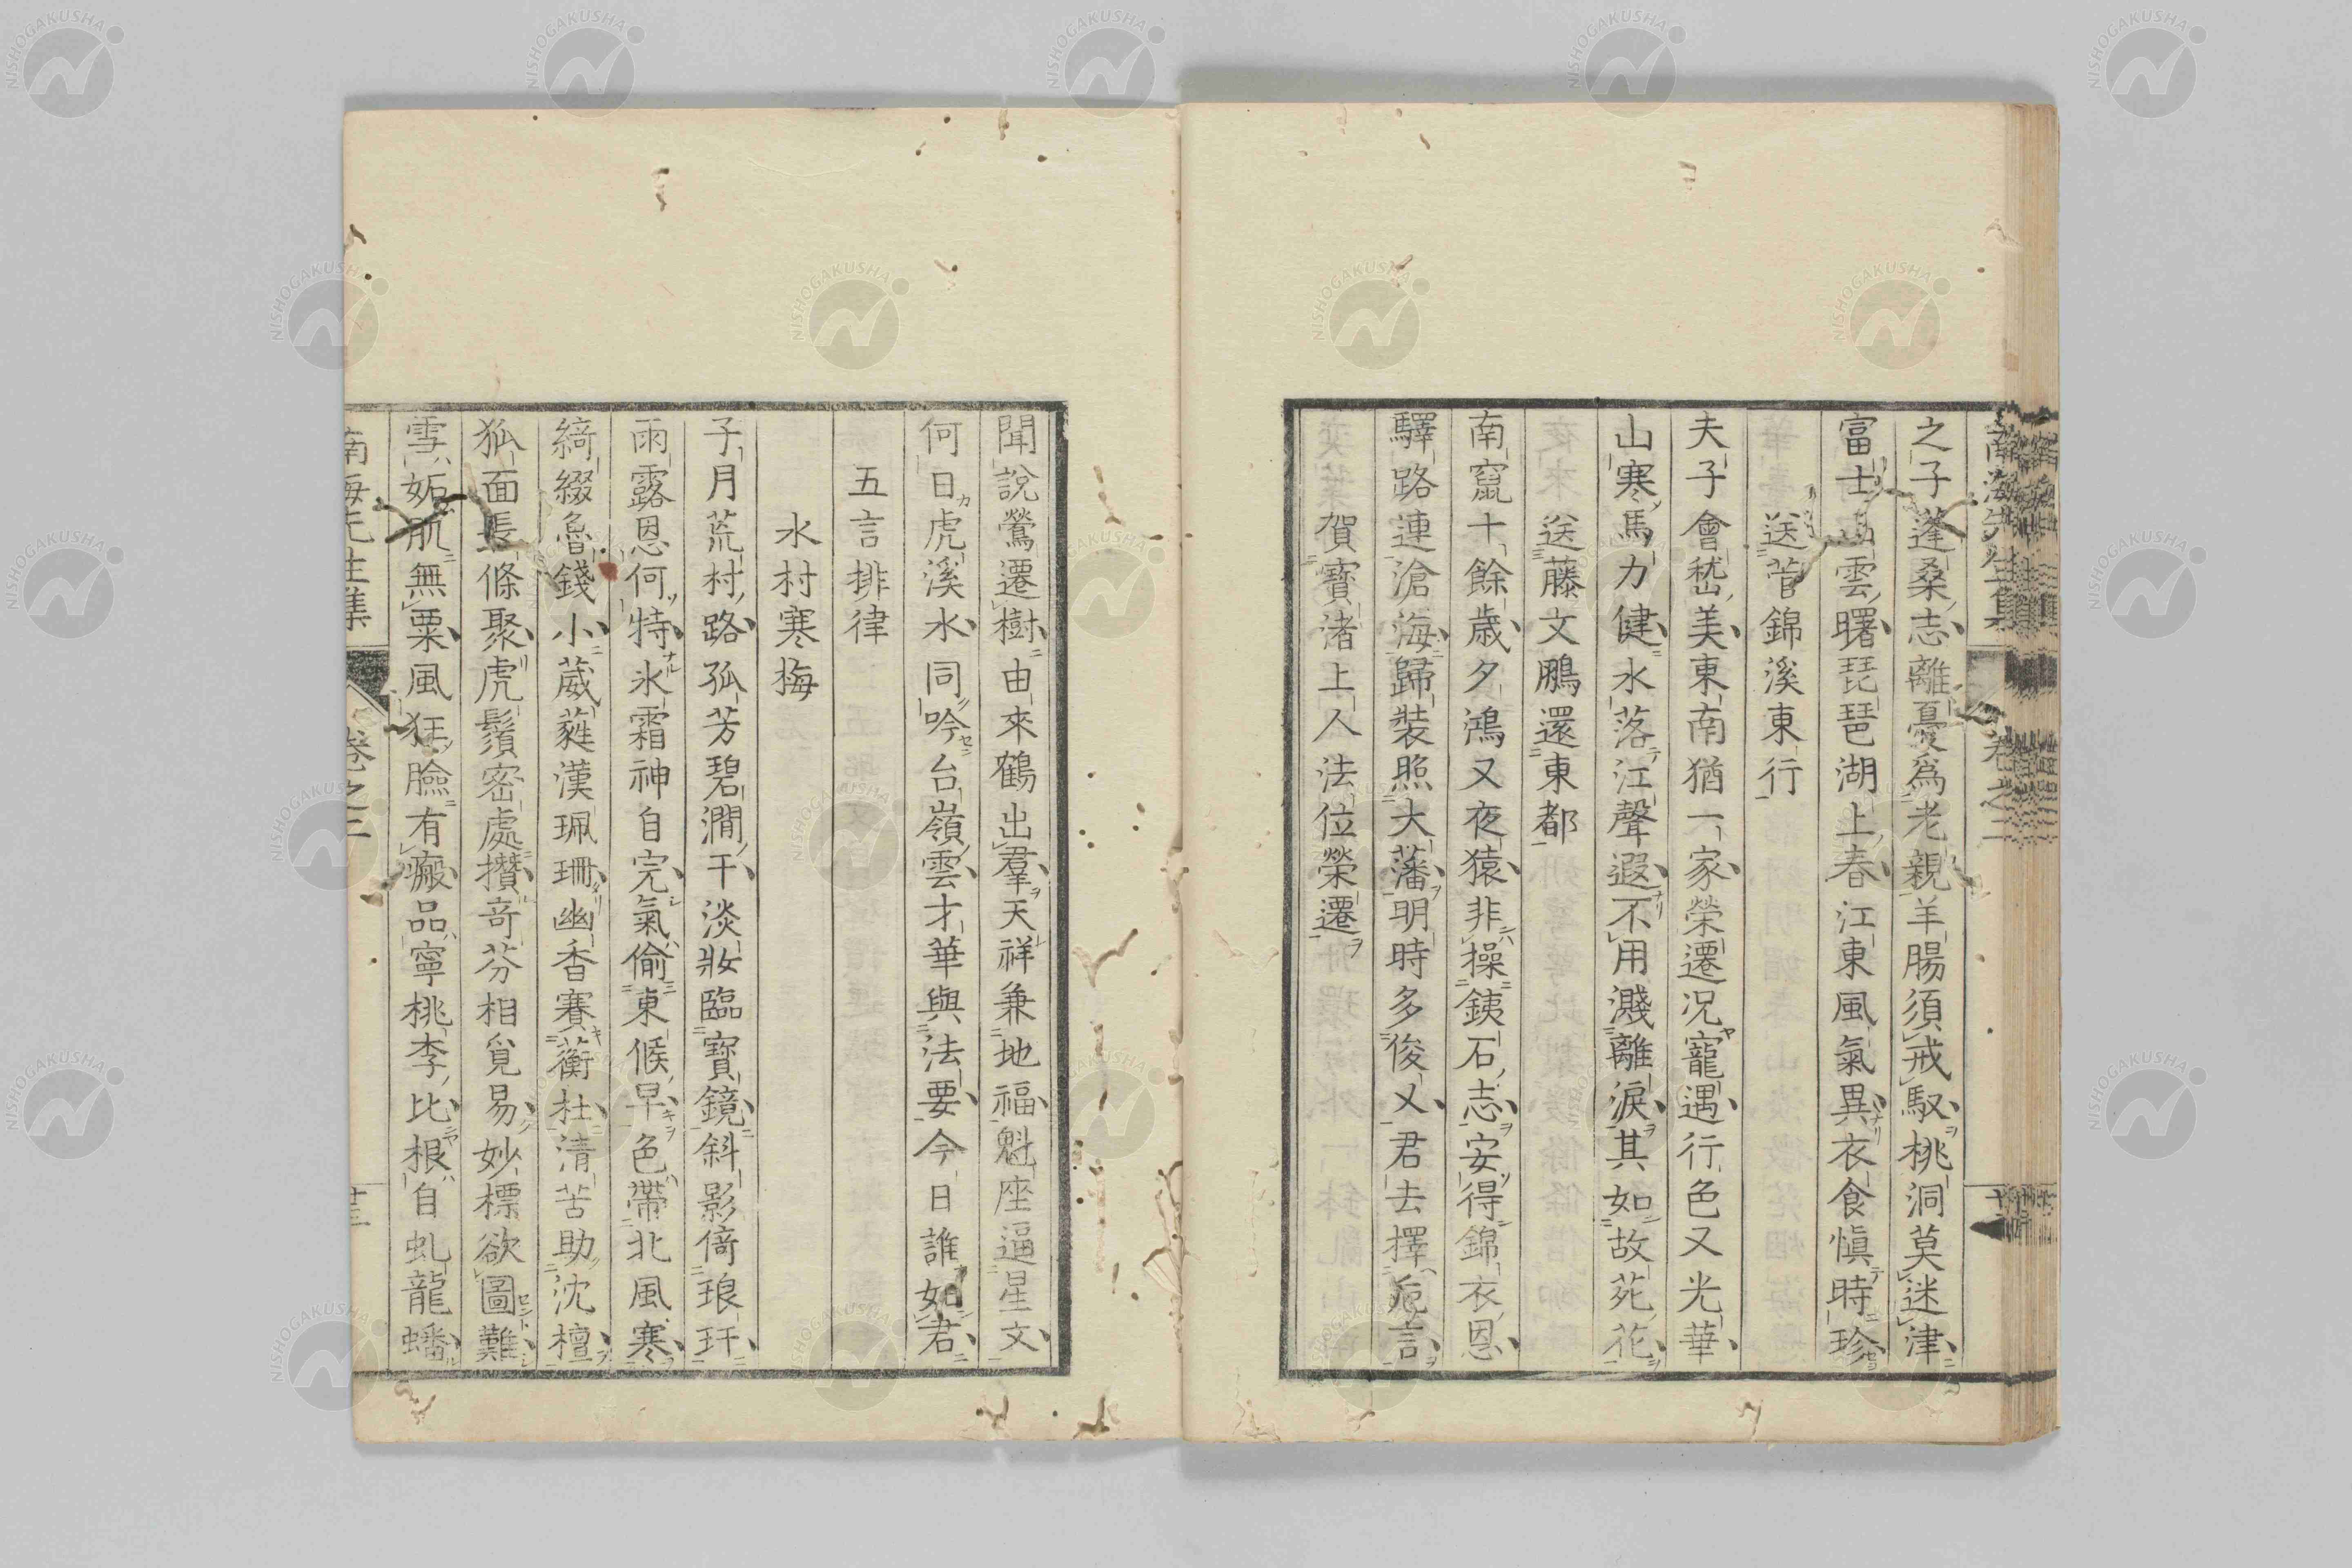 之子蓬桑志離憂爲老親羊腸須戒馭桃洞莫迷津
富士山雲曙琵琶湖上春江東風氣異衣食愼時珍
送菅錦溪東行
夫子會嵇美東南猶一家榮遷况寵遇行色又光華
山寒馬力健水落江聲遐不用濺離涙其如故苑花
送藤文鵬還東都
南竄十餘歳夕鴻又夜猿非操銕石志安得錦衣恩
驛路連滄海歸裝照大藩明時多俊乂君去擇危言
賀寶渚上人法位榮遷
聞說鶯遷樹由來鶴出羣天祥兼地福魁座逼星文
何日虎溪水同吟台嶺雲才華與法要今日誰如君
五言排律
水村寒梅
子月荒村路孤芳碧澗干淡妝臨寶鏡斜影倚琅玕
雨露恩何特氷霜神自完氣偷東候早色帶北風寒
綺綴魯錢小葳蕤漢珮珊幽香賽蘅杜清苦助沈檀
狐面長條聚虎鬚密處攅奇芬相覓易妙標欲圖難
雪妬肌無粟風狂臉有瘢品寧桃李比根自虬龍蟠
南海先生集 卷之二
NISHOGAKUSHA